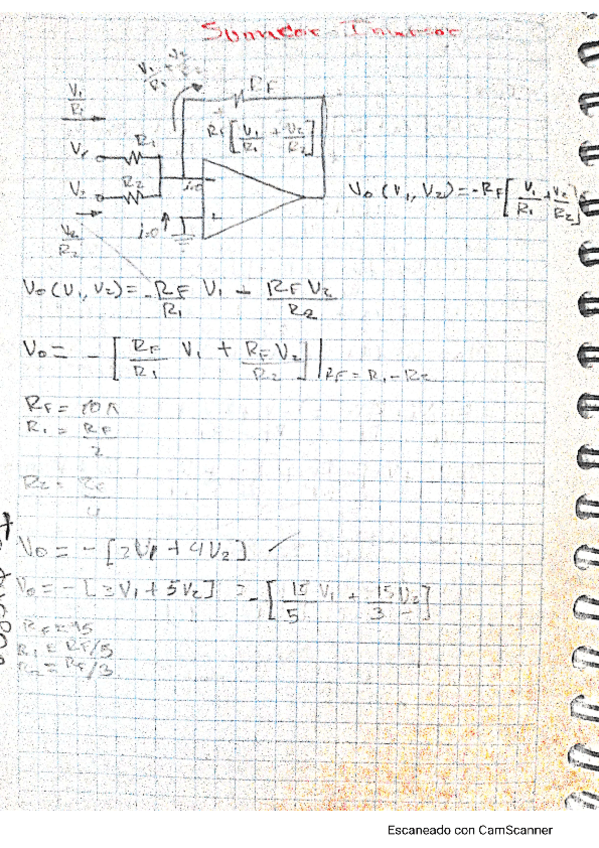 Sumador Inversor
V1/R1 + V2/R2
RF
V1/R1
RF [V1/R1 + V2/R2]
R1
V1
R2
V2
i=0
V2/R2
i=0
Vo (V1, V2) = -RF [V1/R1 + V2/R2]
Vo (V1, V2) = -RF/R1 V1 - RF V2/R2
Vo = - [RF/R1 V1 + RF V2/R2] | RF = R1 - R2
RF = 10k
R1 = RF/2
R2 = RF/4
Vo = - [2V1 + 4V2]
Vo = - [3V1 + 5V2] = - [15/5 V1 + 15V2/3]
RF = 15
R1 = RF/5
R2 = RF/3
Escaneado con CamScanner